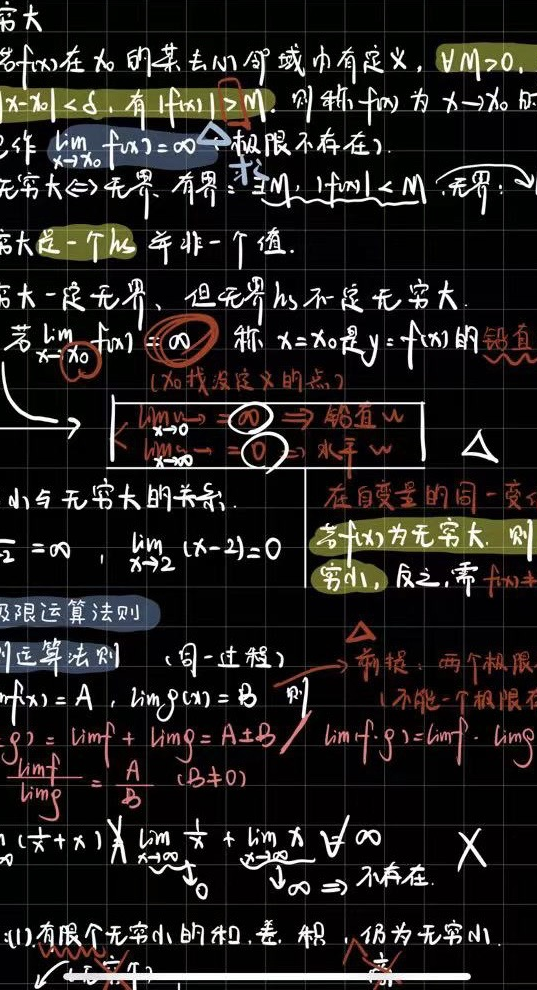 穷大
若f(x)在x₀的某去心邻域内有定义，∀M>0，
|x-x₀|<δ，有|f(x)|>M，则称f(x)为x→x₀的
记作 lim x→x₀ f(x)=∞ (极限不存在).
无穷大⇔无界 有界：∃M，|f(x)|<M，无界：
穷大是一个hs 并非一个值.
穷大一定无界、但无界hs不一定无穷大.
若 lim x→x₀ f(x)=∞ 称 x=x₀是y=f(x)的铅直
(x₀找没定义的点)
lim x→0 → =∞ ⇒ 铅直
lim x→∞ → =0 ⇒ 水平
小与无穷大的关系.
在自变量的同一变化
=∞，lim x→2 (x-2)=0
若f(x)为无穷大，则
穷小，反之，需f(x)≠
极限运算法则
则运算法则 (同一过程)
前提：两个极限
limf(x)=A，limg(x)=B 则
(不能一个极限存
g)=limf+limg=A±B
lim(f·g)=limf·limg
limf/limg = A/B (B≠0)
(1/x+x) lim x→∞ 1/x + lim x→∞ x ∞ ×
↓0 ↓∞ ⇒ 不存在.
:(1)有限个无穷小的和、差、积，仍为无穷小.